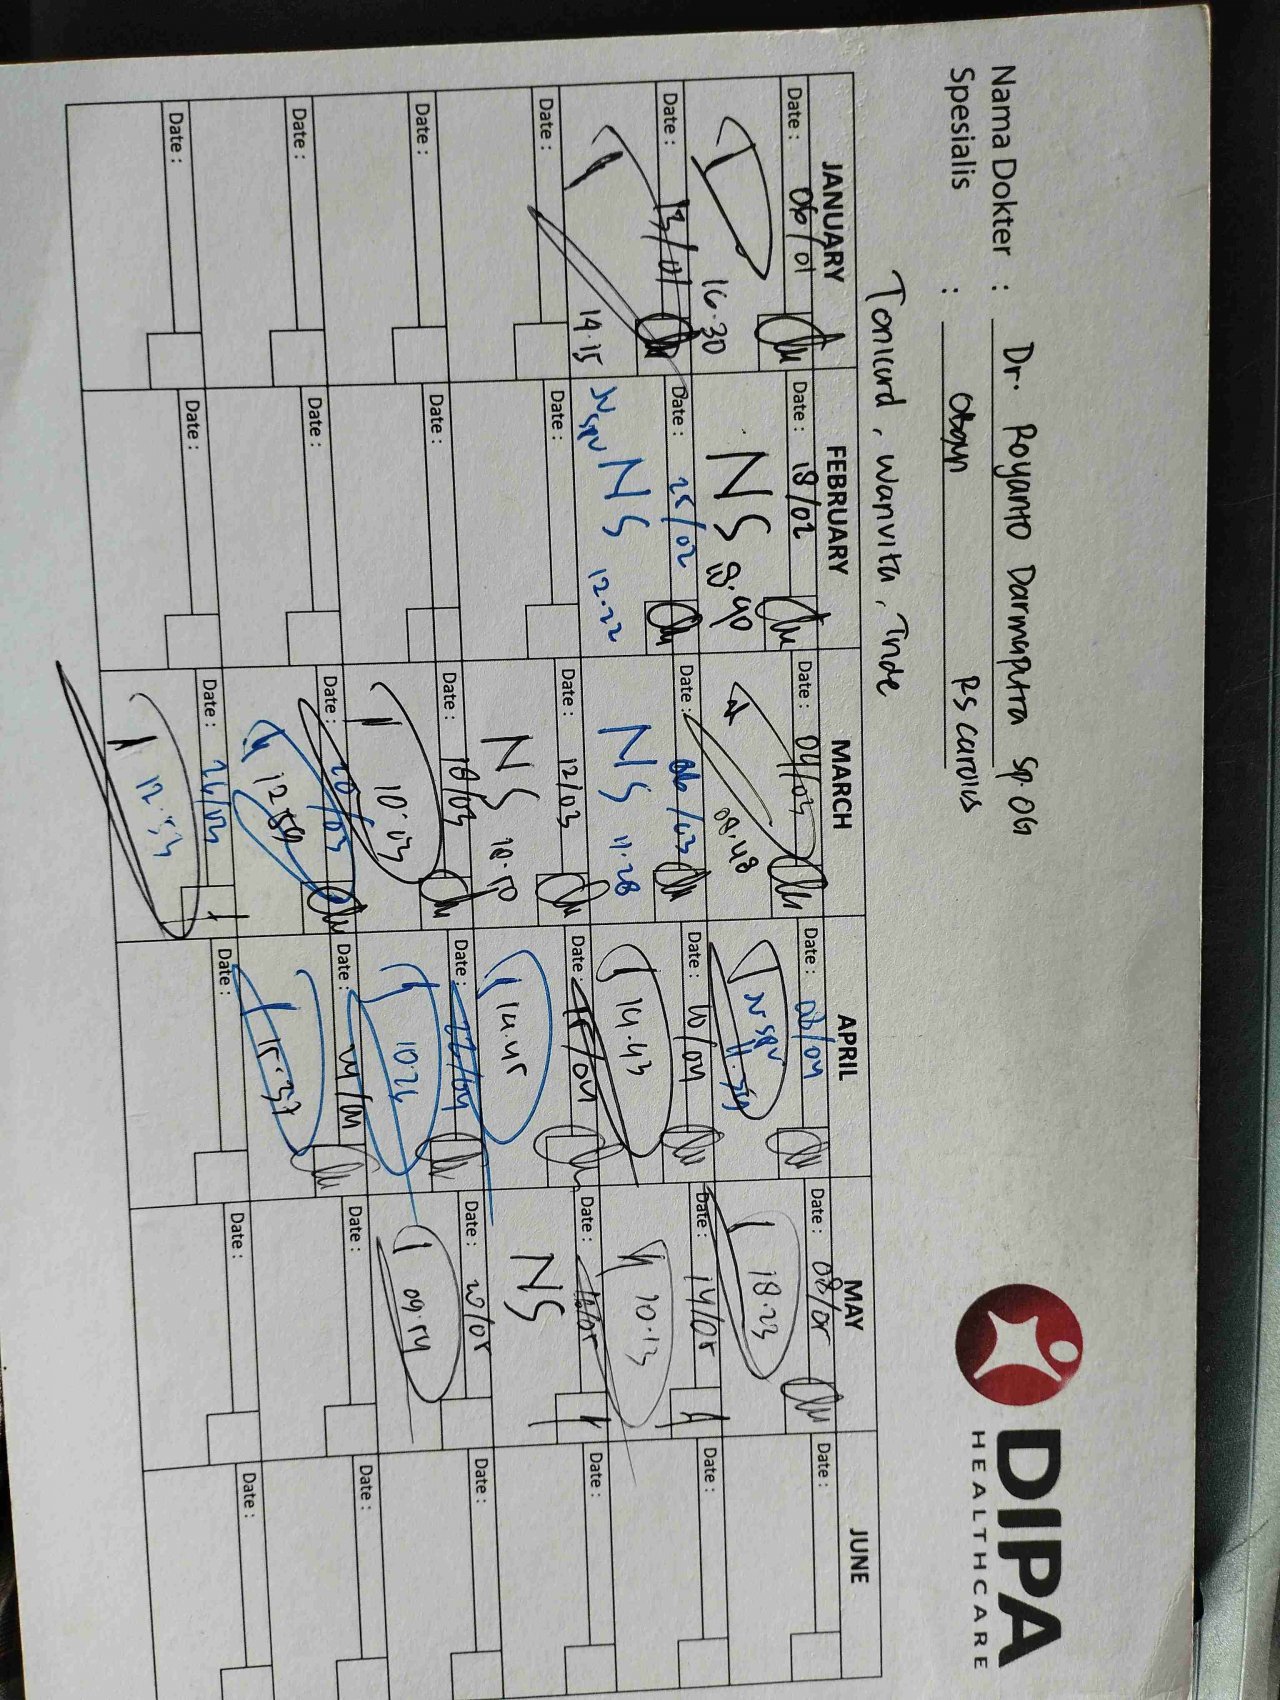 DIPA
HEALTHCARE
Nama Dokter : Dr. Royanto Darmaputra Sp.OG
Spesialis : Obgyn RS Carolus
Tonicard, Wanvita, Inde
JANUARY FEBRUARY MARCH APRIL MAY JUNE
Date : 06/01 Date : 18/02 Date : 04/03 Date : 08/04 Date : 08/05 Date :
16.30 NS 18.40 08.48 N SPV 11.54 18.23
Date : 13/01 Date : 25/02 Date : 06/03 Date : 10/04 Date : 14/05 Date :
14.15 N SPV NS 12.22 NS 11.28 14.43 10.13
Date : Date : Date : 12/03 Date : 15/04 Date : Date :
NS 18.50 14.45 NS
Date : Date : Date : 18/03 Date : 22/04 Date : 20/05 Date :
10.03 10.26 09.54
Date : Date : Date : 20/03 Date : 24/04 Date : Date :
12.59 15.37
Date : Date : Date : 26/03 Date : Date : Date :
12.53